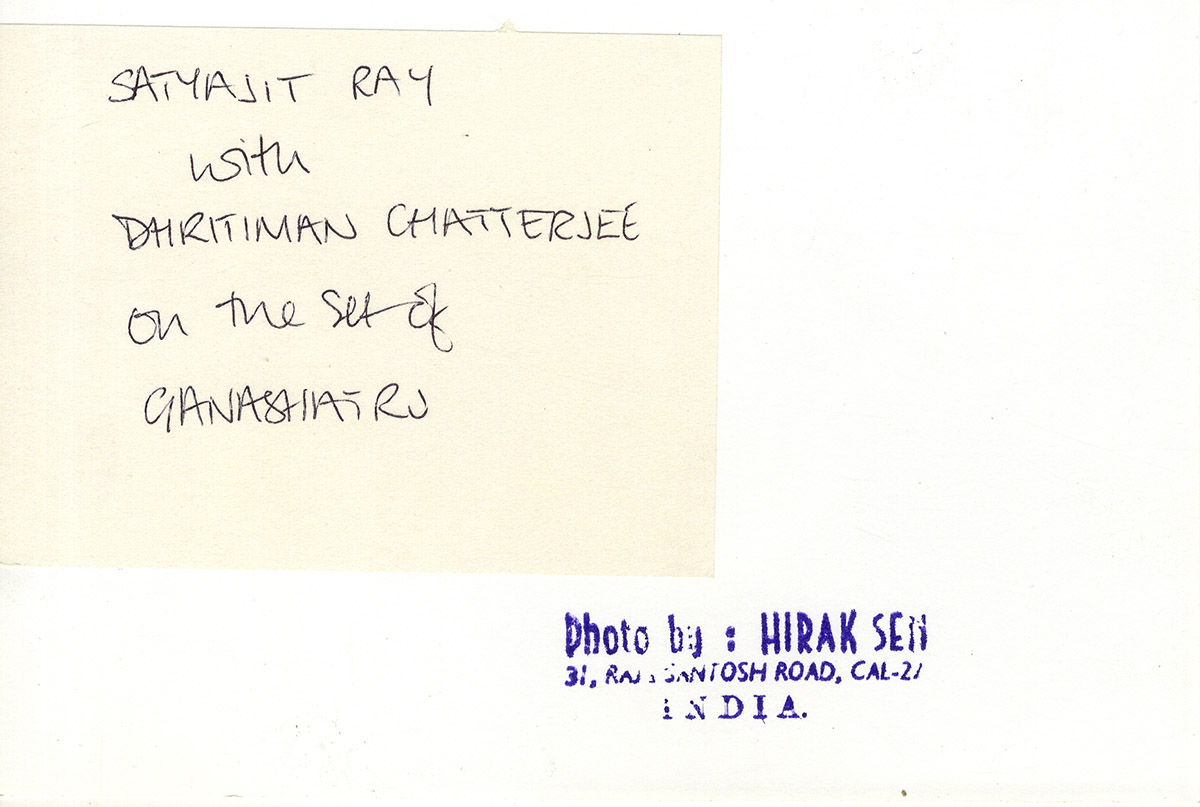 SATYAJIT RAY
with
DHRITIMAN CHATTERJEE
on the set of
GANASHATRU
Photo by : HIRAK SEN
31, RAJA SANTOSH ROAD, CAL-27
INDIA.